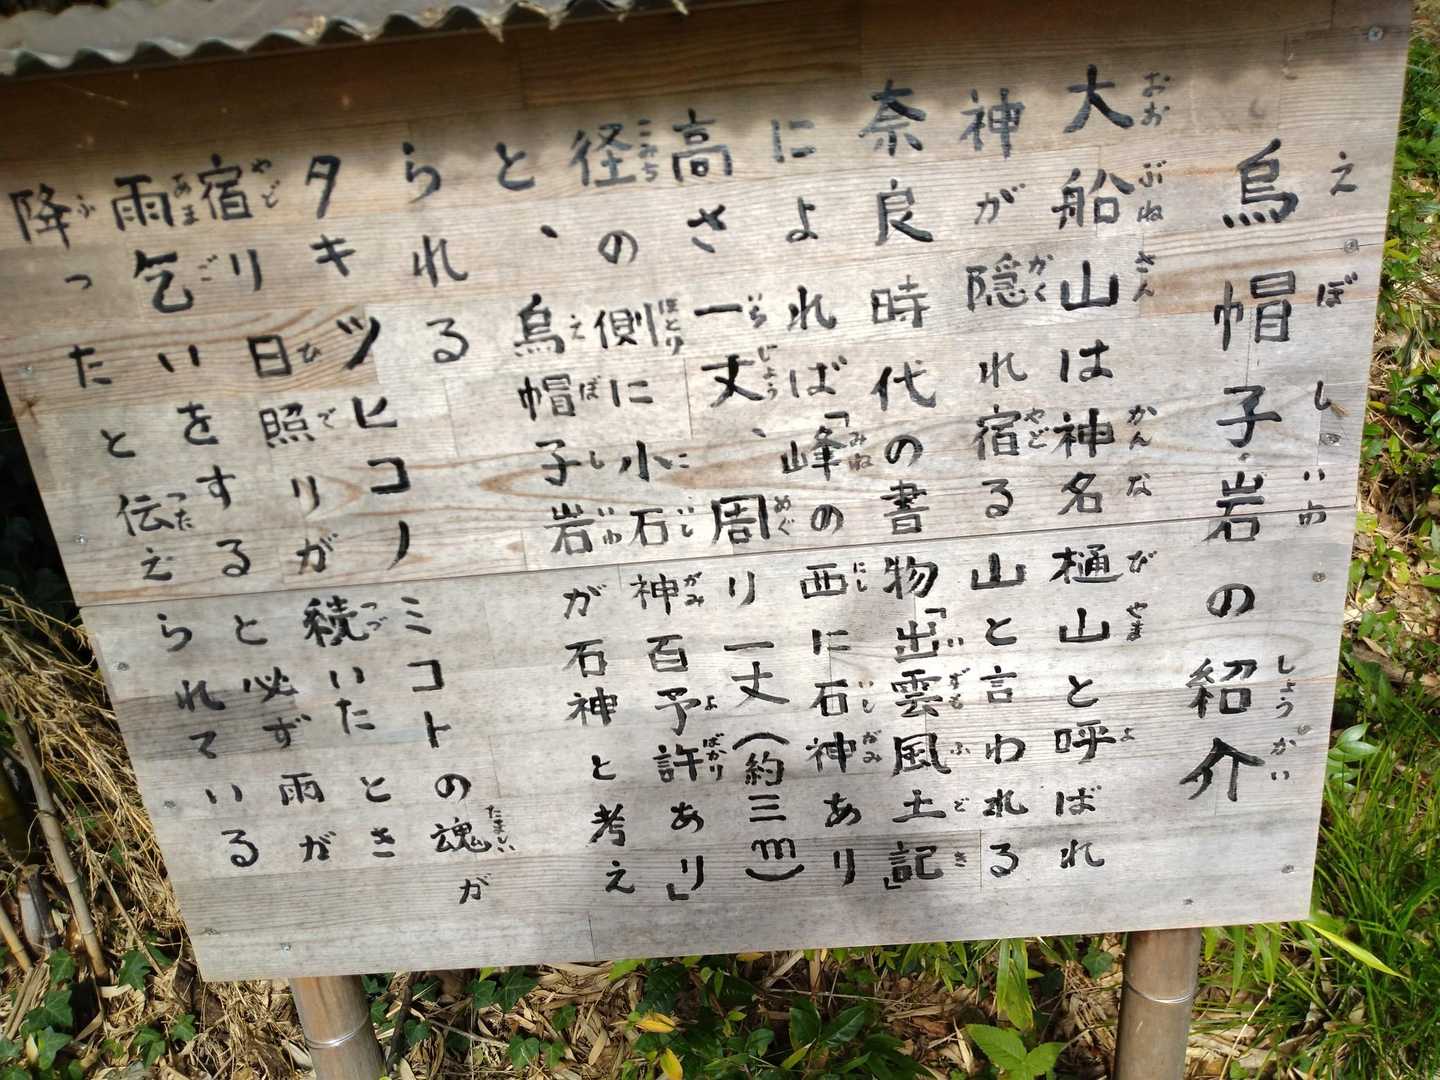 烏帽子岩の紹介
大船山は神名樋山と呼ばれ
神が隠れ宿る山と言われる
奈良時代の書物「出雲風土記」
によれば「峰の西に石神あり
高さ一丈、周り一丈(約三m)
径の側に小石神百予許あり」
と、烏帽子岩が石神と考え
られる
タキツヒコノミコトの魂が
宿り日照りが続いたとき
雨乞いをすると必ず雨が
降ったと伝えられている